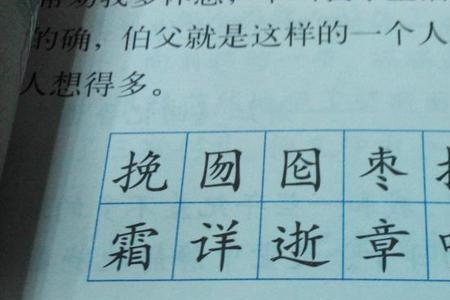 的确，伯父就是这样的一个人
人想得多。
挽 囫 囵 枣
霜 详 逝 章